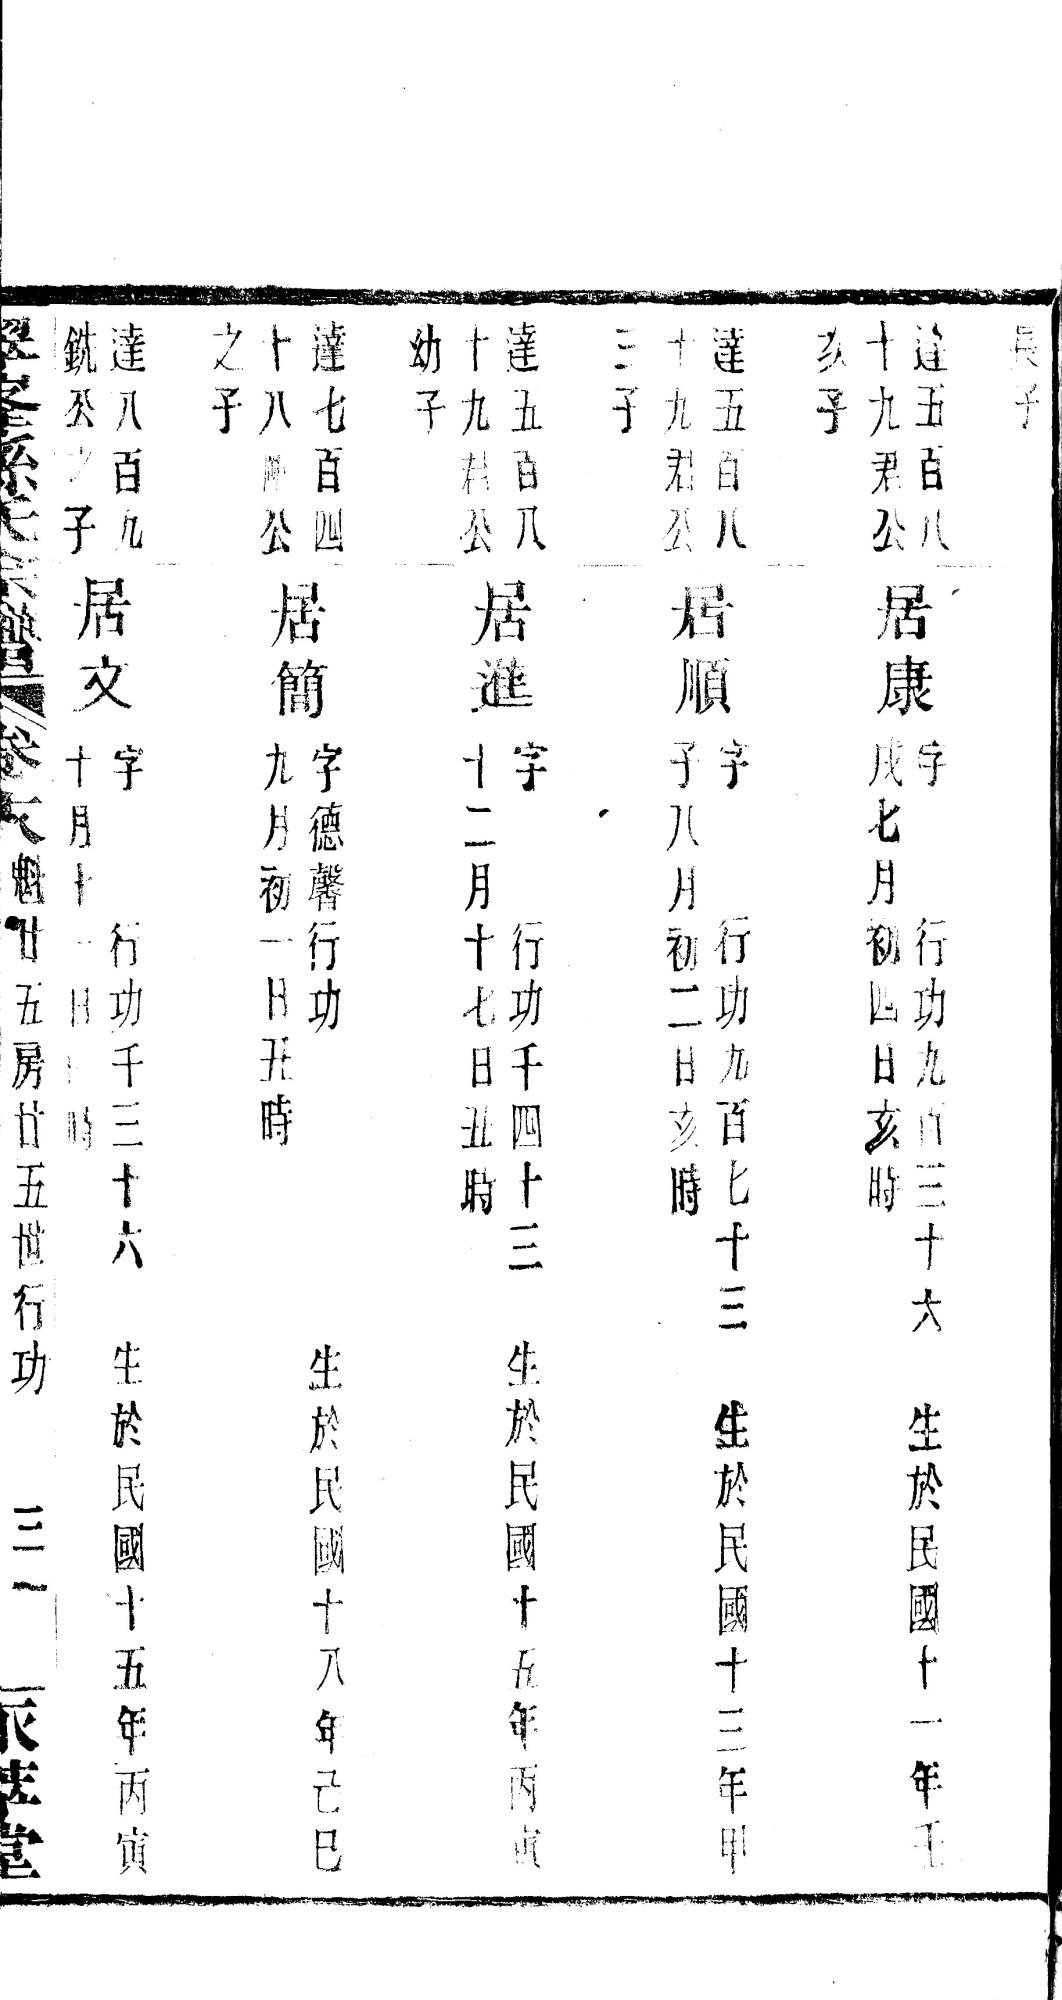 長子
達五百八
十九君公
亥子
居康
字 行功九百三十六 生於民國十一年壬
戌七月初四日亥時
達五百八
十九君公
三子
居順
字 行功九百七十三 生於民國十三年甲
子八月初二日亥時
達五百八
十九君公
幼子
居進
字 行功千四十三 生於民國十五年丙寅
十二月十七日丑時
達七百四
十八公
之子
居簡
字德馨行功 生於民國十八年己巳
九月初一日丑時
達八百九
銑公之子
居文
字 行功千三十六 生於民國十五年丙寅
十月十一日時
孫氏宗譜 卷 魁廿五房廿五世行功 三一 堂